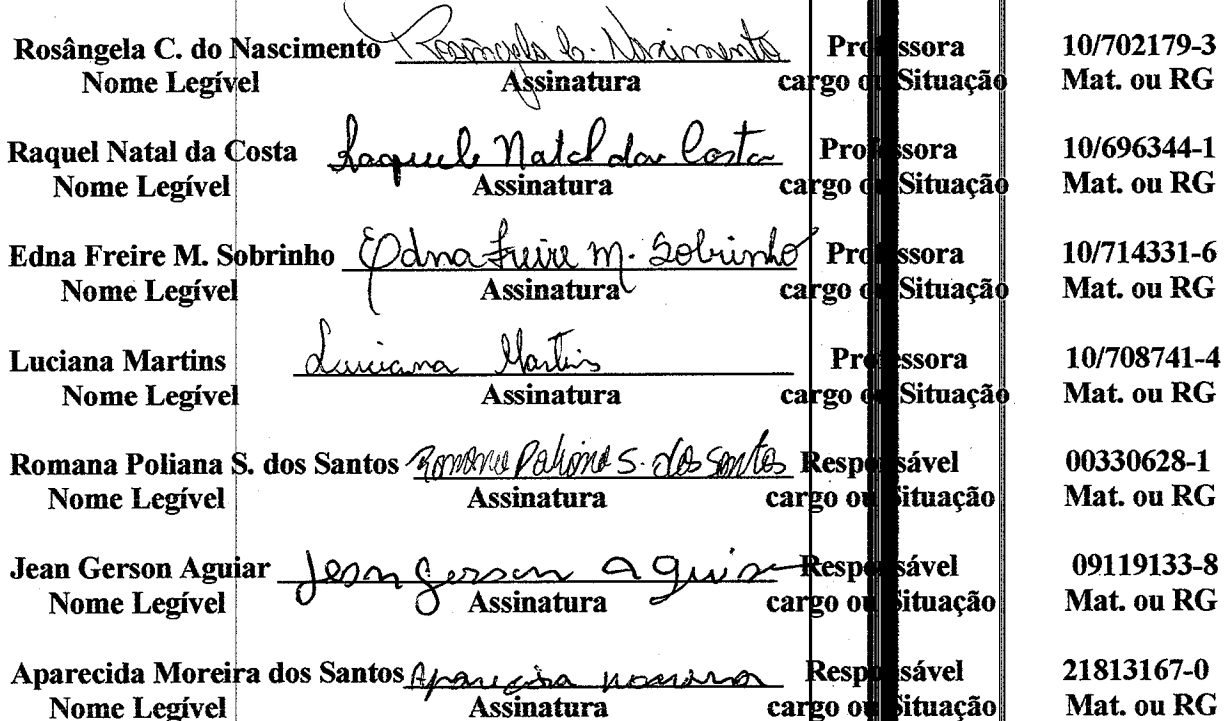 Rosângela C. do Nascimento Rosangela C. Nascimento Professora 10/702179-3
Nome Legível Assinatura cargo ou Situação Mat. ou RG
Raquel Natal da Costa Raquel Natal da Costa Professora 10/696344-1
Nome Legível Assinatura cargo ou Situação Mat. ou RG
Edna Freire M. Sobrinho Edna Freire M. Sobrinho Professora 10/714331-6
Nome Legível Assinatura cargo ou Situação Mat. ou RG
Luciana Martins Luciana Martins Professora 10/708741-4
Nome Legível Assinatura cargo ou Situação Mat. ou RG
Romana Poliana S. dos Santos Romana Poliana S. dos Santos Responsável 00330628-1
Nome Legível Assinatura cargo ou Situação Mat. ou RG
Jean Gerson Aguiar Jean Gerson Aguiar Responsável 09119133-8
Nome Legível Assinatura cargo ou Situação Mat. ou RG
Aparecida Moreira dos Santos Aparecida Moreira Responsável 21813167-0
Nome Legível Assinatura cargo ou Situação Mat. ou RG